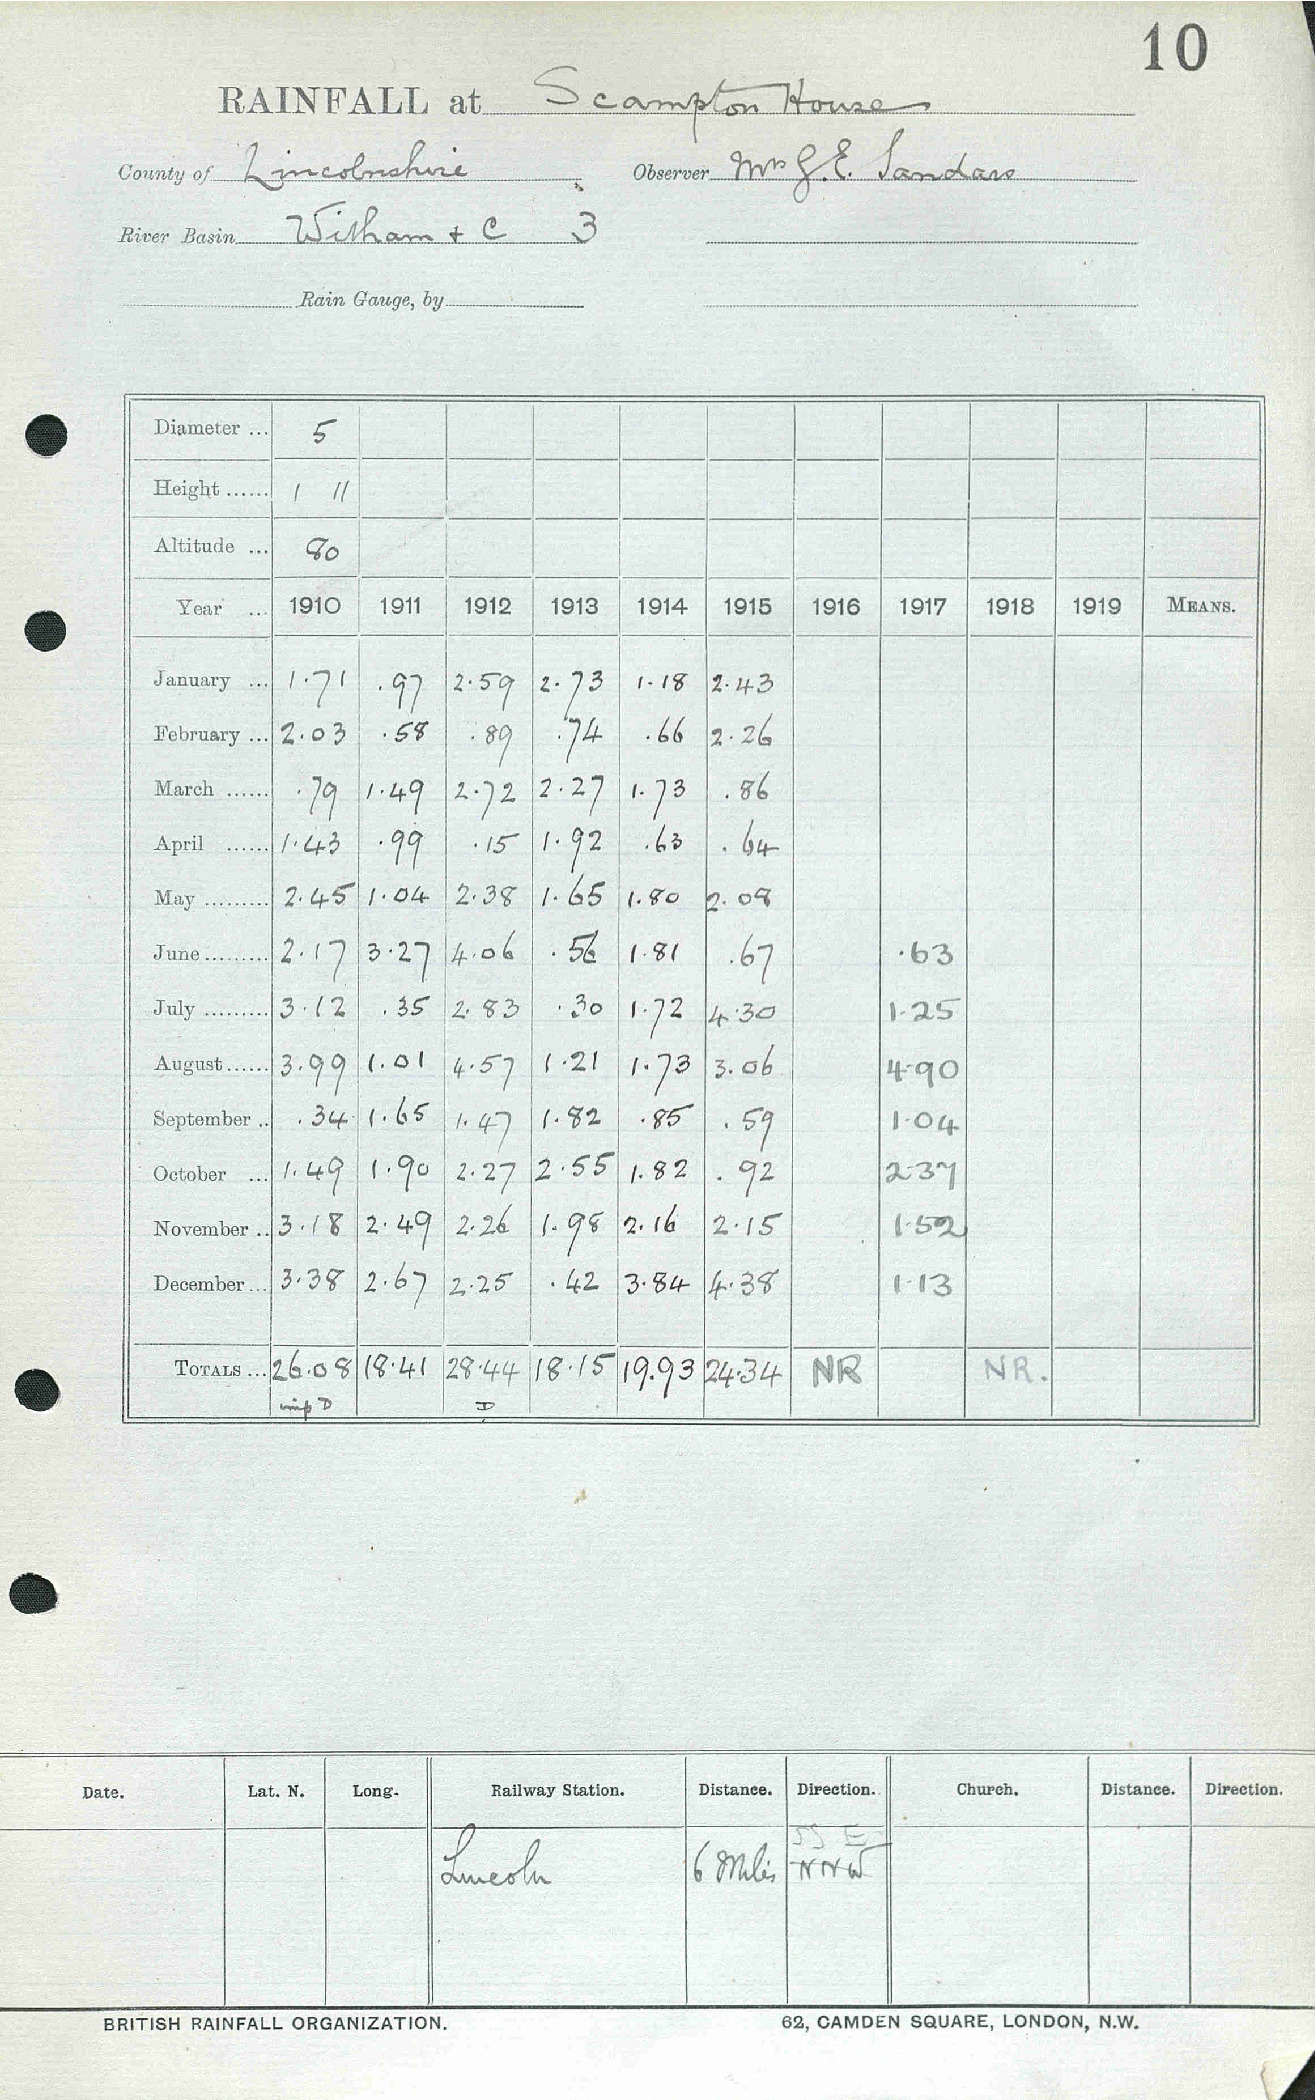 10
RAINFALL at Scampton House
County of Lincolnshire Observer Mrs G. E. Sandars
River Basin Witham & C 3
Rain Gauge, by
Diameter ... 5
Height ...... 1 11
Altitude ... 80
Year ... 1910 1911 1912 1913 1914 1915 1916 1917 1918 1919 MEANS.
January ... 1.71 .97 2.59 2.73 1.18 2.43
February ... 2.03 .58 .89 .74 .66 2.26
March ...... .79 1.49 2.72 2.27 1.73 .86
April ...... 1.43 .99 .15 1.92 .63 .64
May ......... 2.45 1.04 2.38 1.65 1.80 2.08
June ......... 2.17 3.27 4.06 .56 1.81 .67 .63
July ......... 3.12 .35 2.83 .30 1.72 4.30 1.25
August ...... 3.99 1.01 4.57 1.21 1.73 3.06 4.90
September .. .34 1.65 1.47 1.82 .85 .59 1.04
October ... 1.49 1.90 2.27 2.55 1.82 .92 2.37
November .. 3.18 2.49 2.26 1.98 2.16 2.15 1.52
December ... 3.38 2.67 2.25 .42 3.84 4.38 1.13
TOTALS ... 26.08 18.41 28.44 18.15 19.93 24.34 NR NR.
imp D D
Date. Lat. N. Long. Railway Station. Distance. Direction. Church. Distance. Direction.
SSE
Lincoln 6 Miles NNW
BRITISH RAINFALL ORGANIZATION. 62, CAMDEN SQUARE, LONDON, N.W.